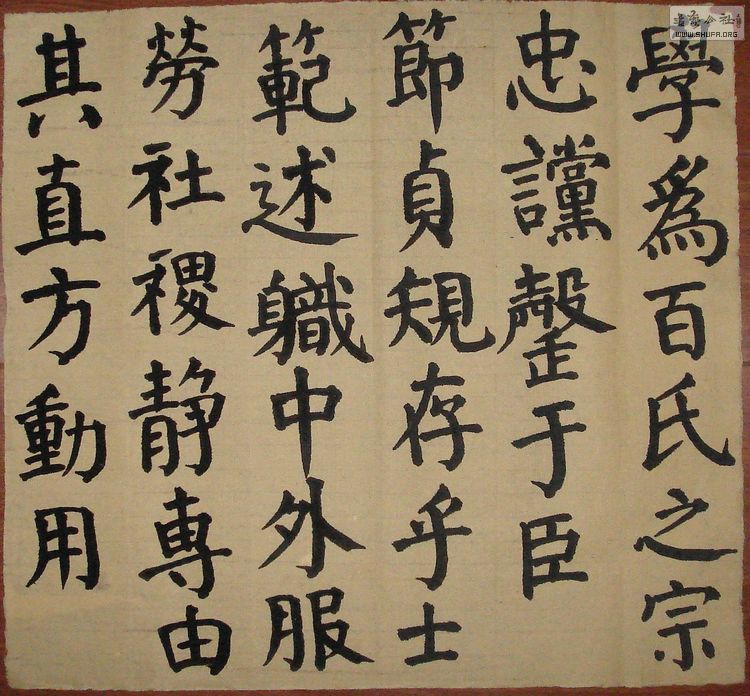 學爲百氏之宗
忠讜罄于臣
節貞規存乎士
範述軄中外服
勞社禝静専由
其直方動用
WWW.SHUFA.ORG